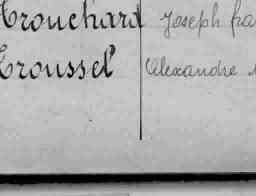 Trouchard Joseph fra
Troussel Alexandre